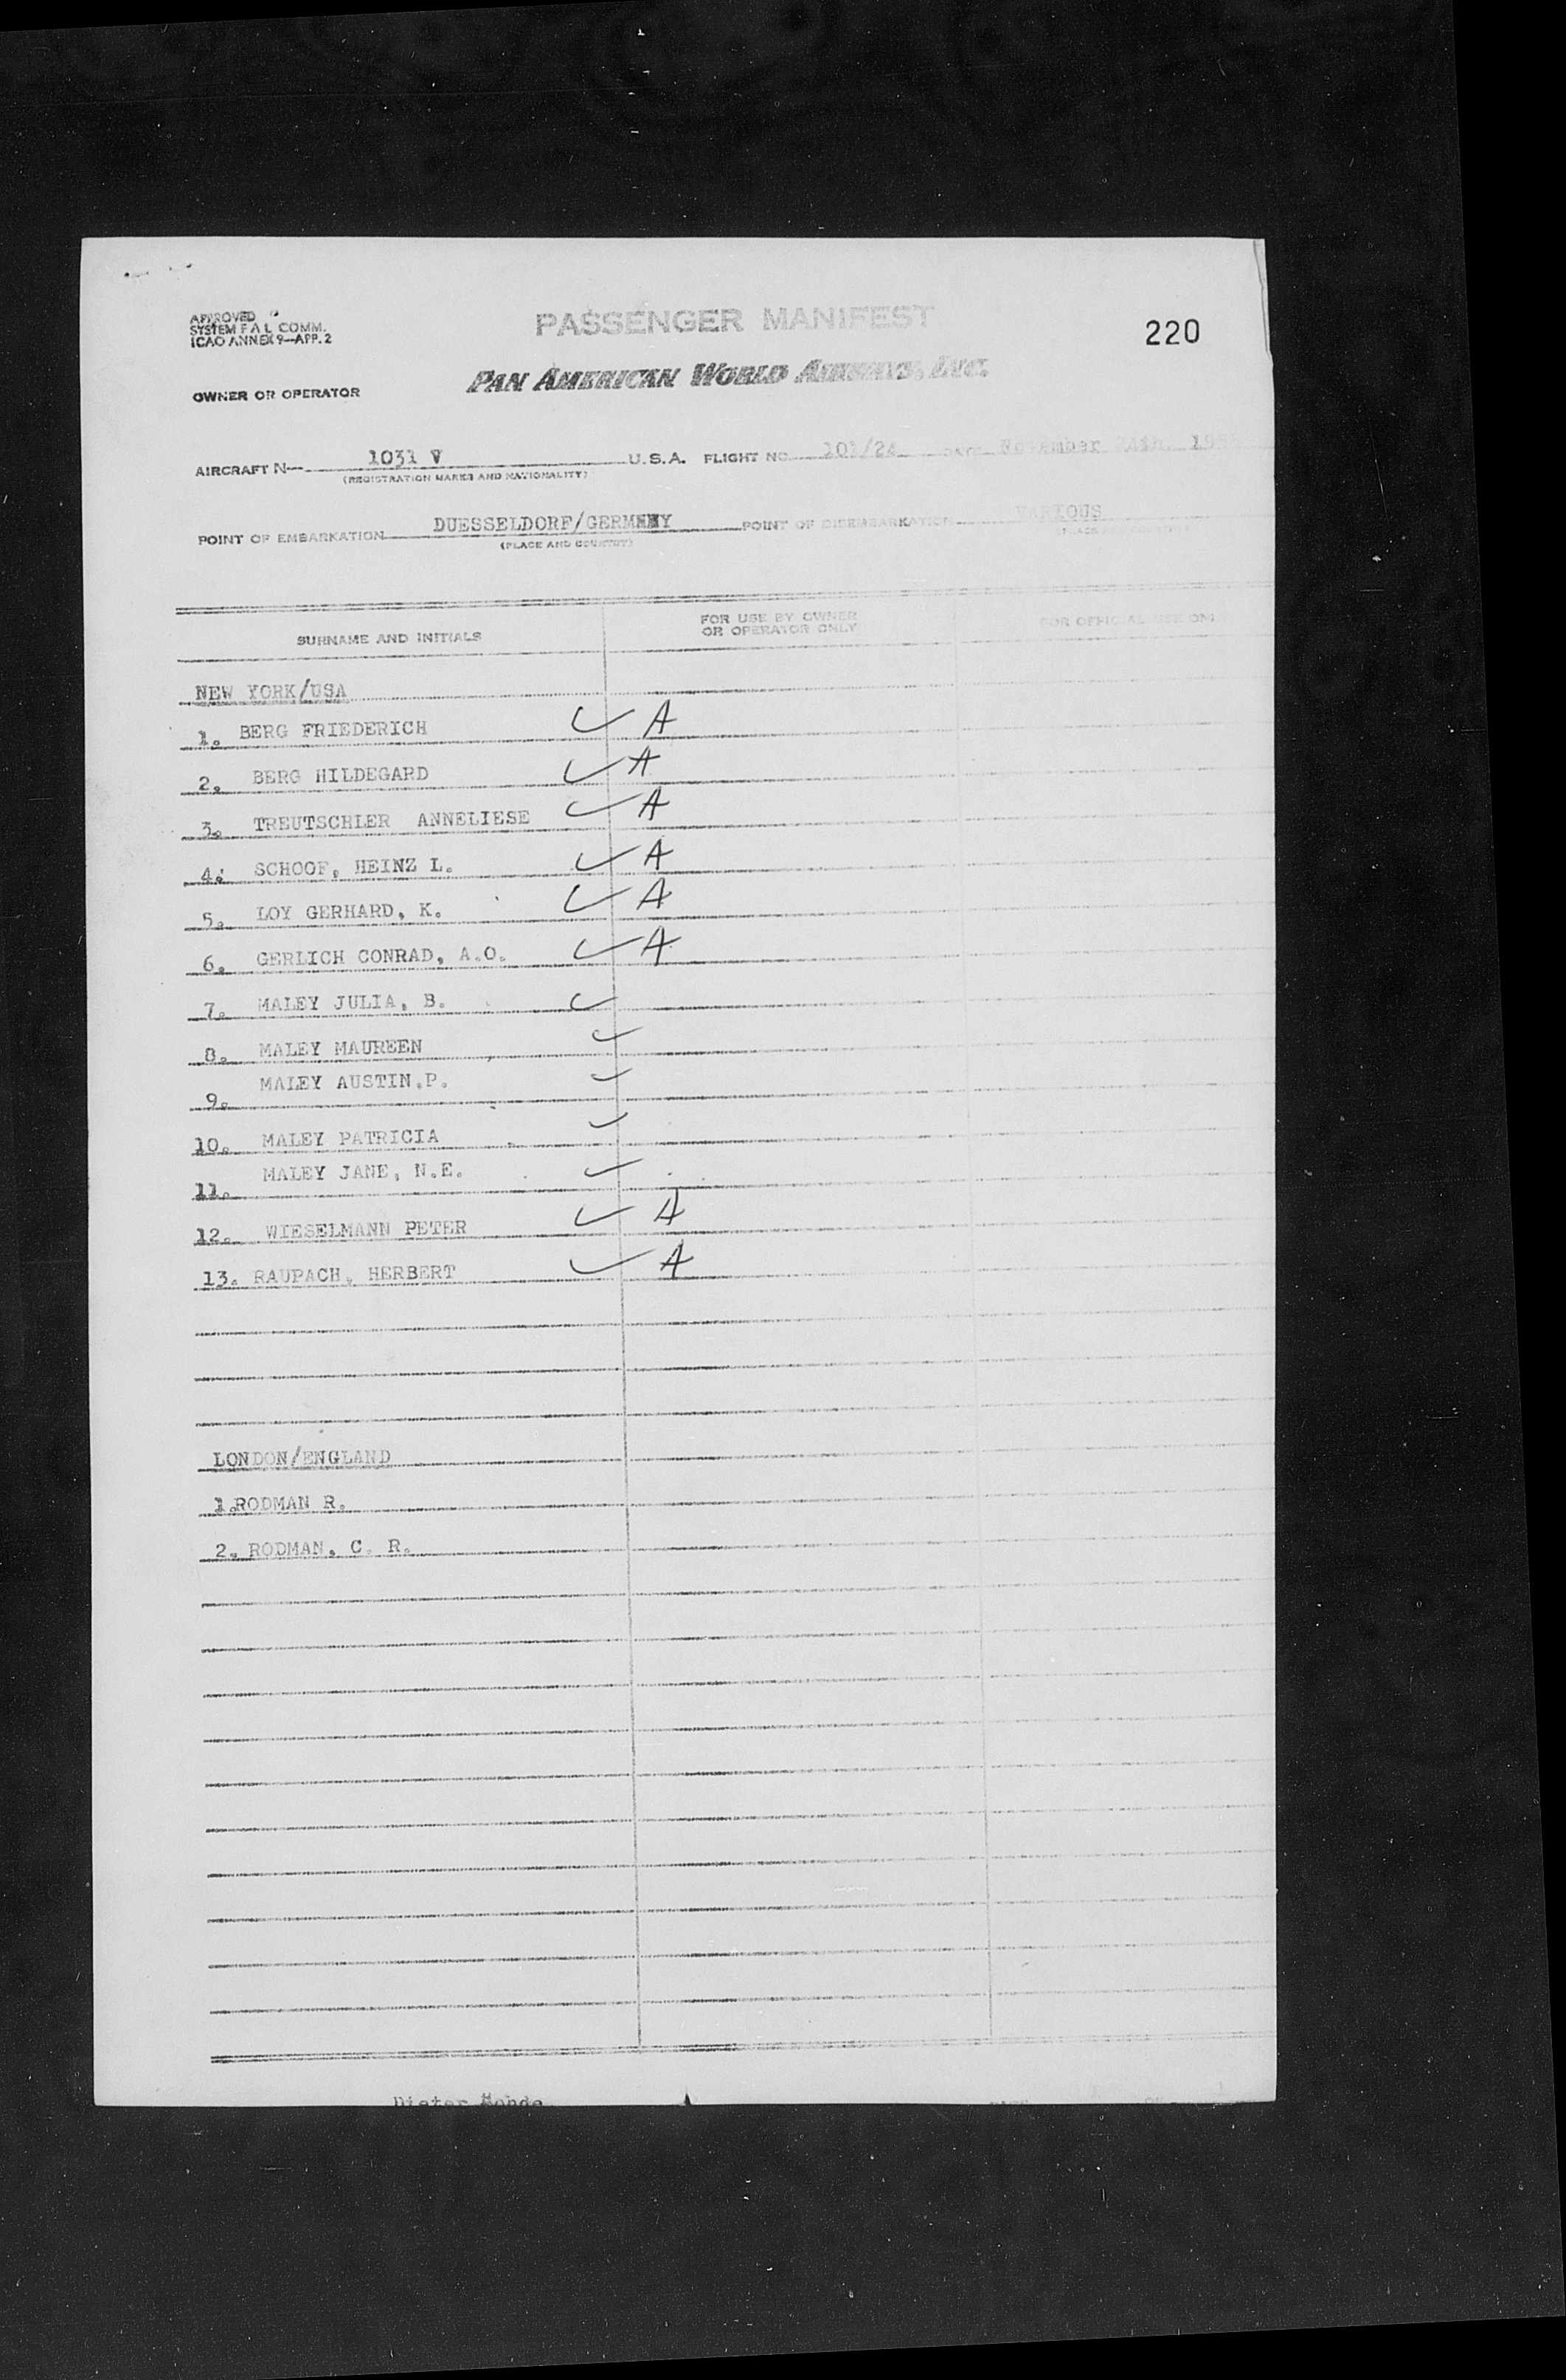 APPROVED
SYSTEM F A L COMM.
ICAO ANNEX 9—APP. 2
PASSENGER MANIFEST
220
OWNER OR OPERATOR
PAN AMERICAN WORLD AIRWAYS, INC.
AIRCRAFT N— 1031 V U.S.A. FLIGHT NO. 101/24 November 24th,
(REGISTRATION MARKS AND NATIONALITY)
POINT OF EMBARKATION DUESSELDORF/GERMENY POINT OF DISEMBARKATION VARIOUS
(PLACE AND COUNTRY)
SURNAME AND INITIALS
FOR USE BY OWNER
OR OPERATOR ONLY
FOR OFFICIAL USE ONLY
NEW YORK/USA
1. BERG FRIEDERICH ✓ A
2. BERG HILDEGARD ✓ A
3. TREUTSCHLER ANNELIESE ✓ A
4. SCHOOF, HEINZ L. ✓ A
5. LOY GERHARD, K. ✓ A
6. GERLICH CONRAD, A.O. ✓ A
7. MALEY JULIA, B. ✓
8. MALEY MAUREEN ✓
9. MALEY AUSTIN.P. ✓
10. MALEY PATRICIA ✓
11. MALEY JANE, N.E. ✓
12. WIESELMANN PETER ✓ A
13. RAUPACH, HERBERT ✓ A
LONDON/ENGLAND
1.RODMAN R.
2. RODMAN, C. R.
Dieter